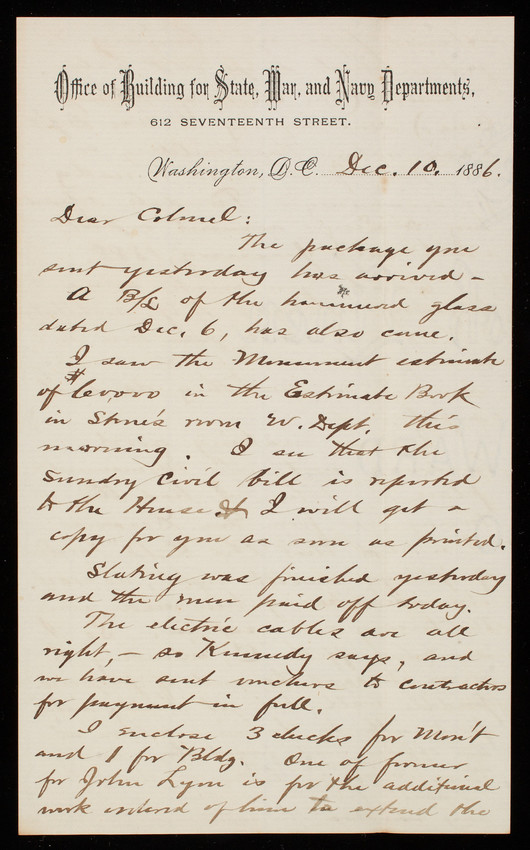 Office of Building for State, War, and Navy Departments,
612 SEVENTEENTH STREET.
Washington, D.C. Dec. 10, 1886.
Dear Colonel:
The package you
sent yesterday has arrived -
A B/L of the hammered glass
dated Dec. 6, has also come.
I saw the Monument estimate
of $60000 in the Estimate Book
in Stone's room W. Dept. this
morning. I see that the
Sundry Civil bill is reported
to the House & I will get a
copy for you as soon as printed.
Slating was finished yesterday
and the men paid off today.
The electric cables are all
right, - so Kennedy says, and
we have sent vouchers to contractors
for payment in full.
I enclose 3 checks for Mon't
and 1 for Bldg. One of former
for John Lyon is for the additional
work ordered of him to extend the